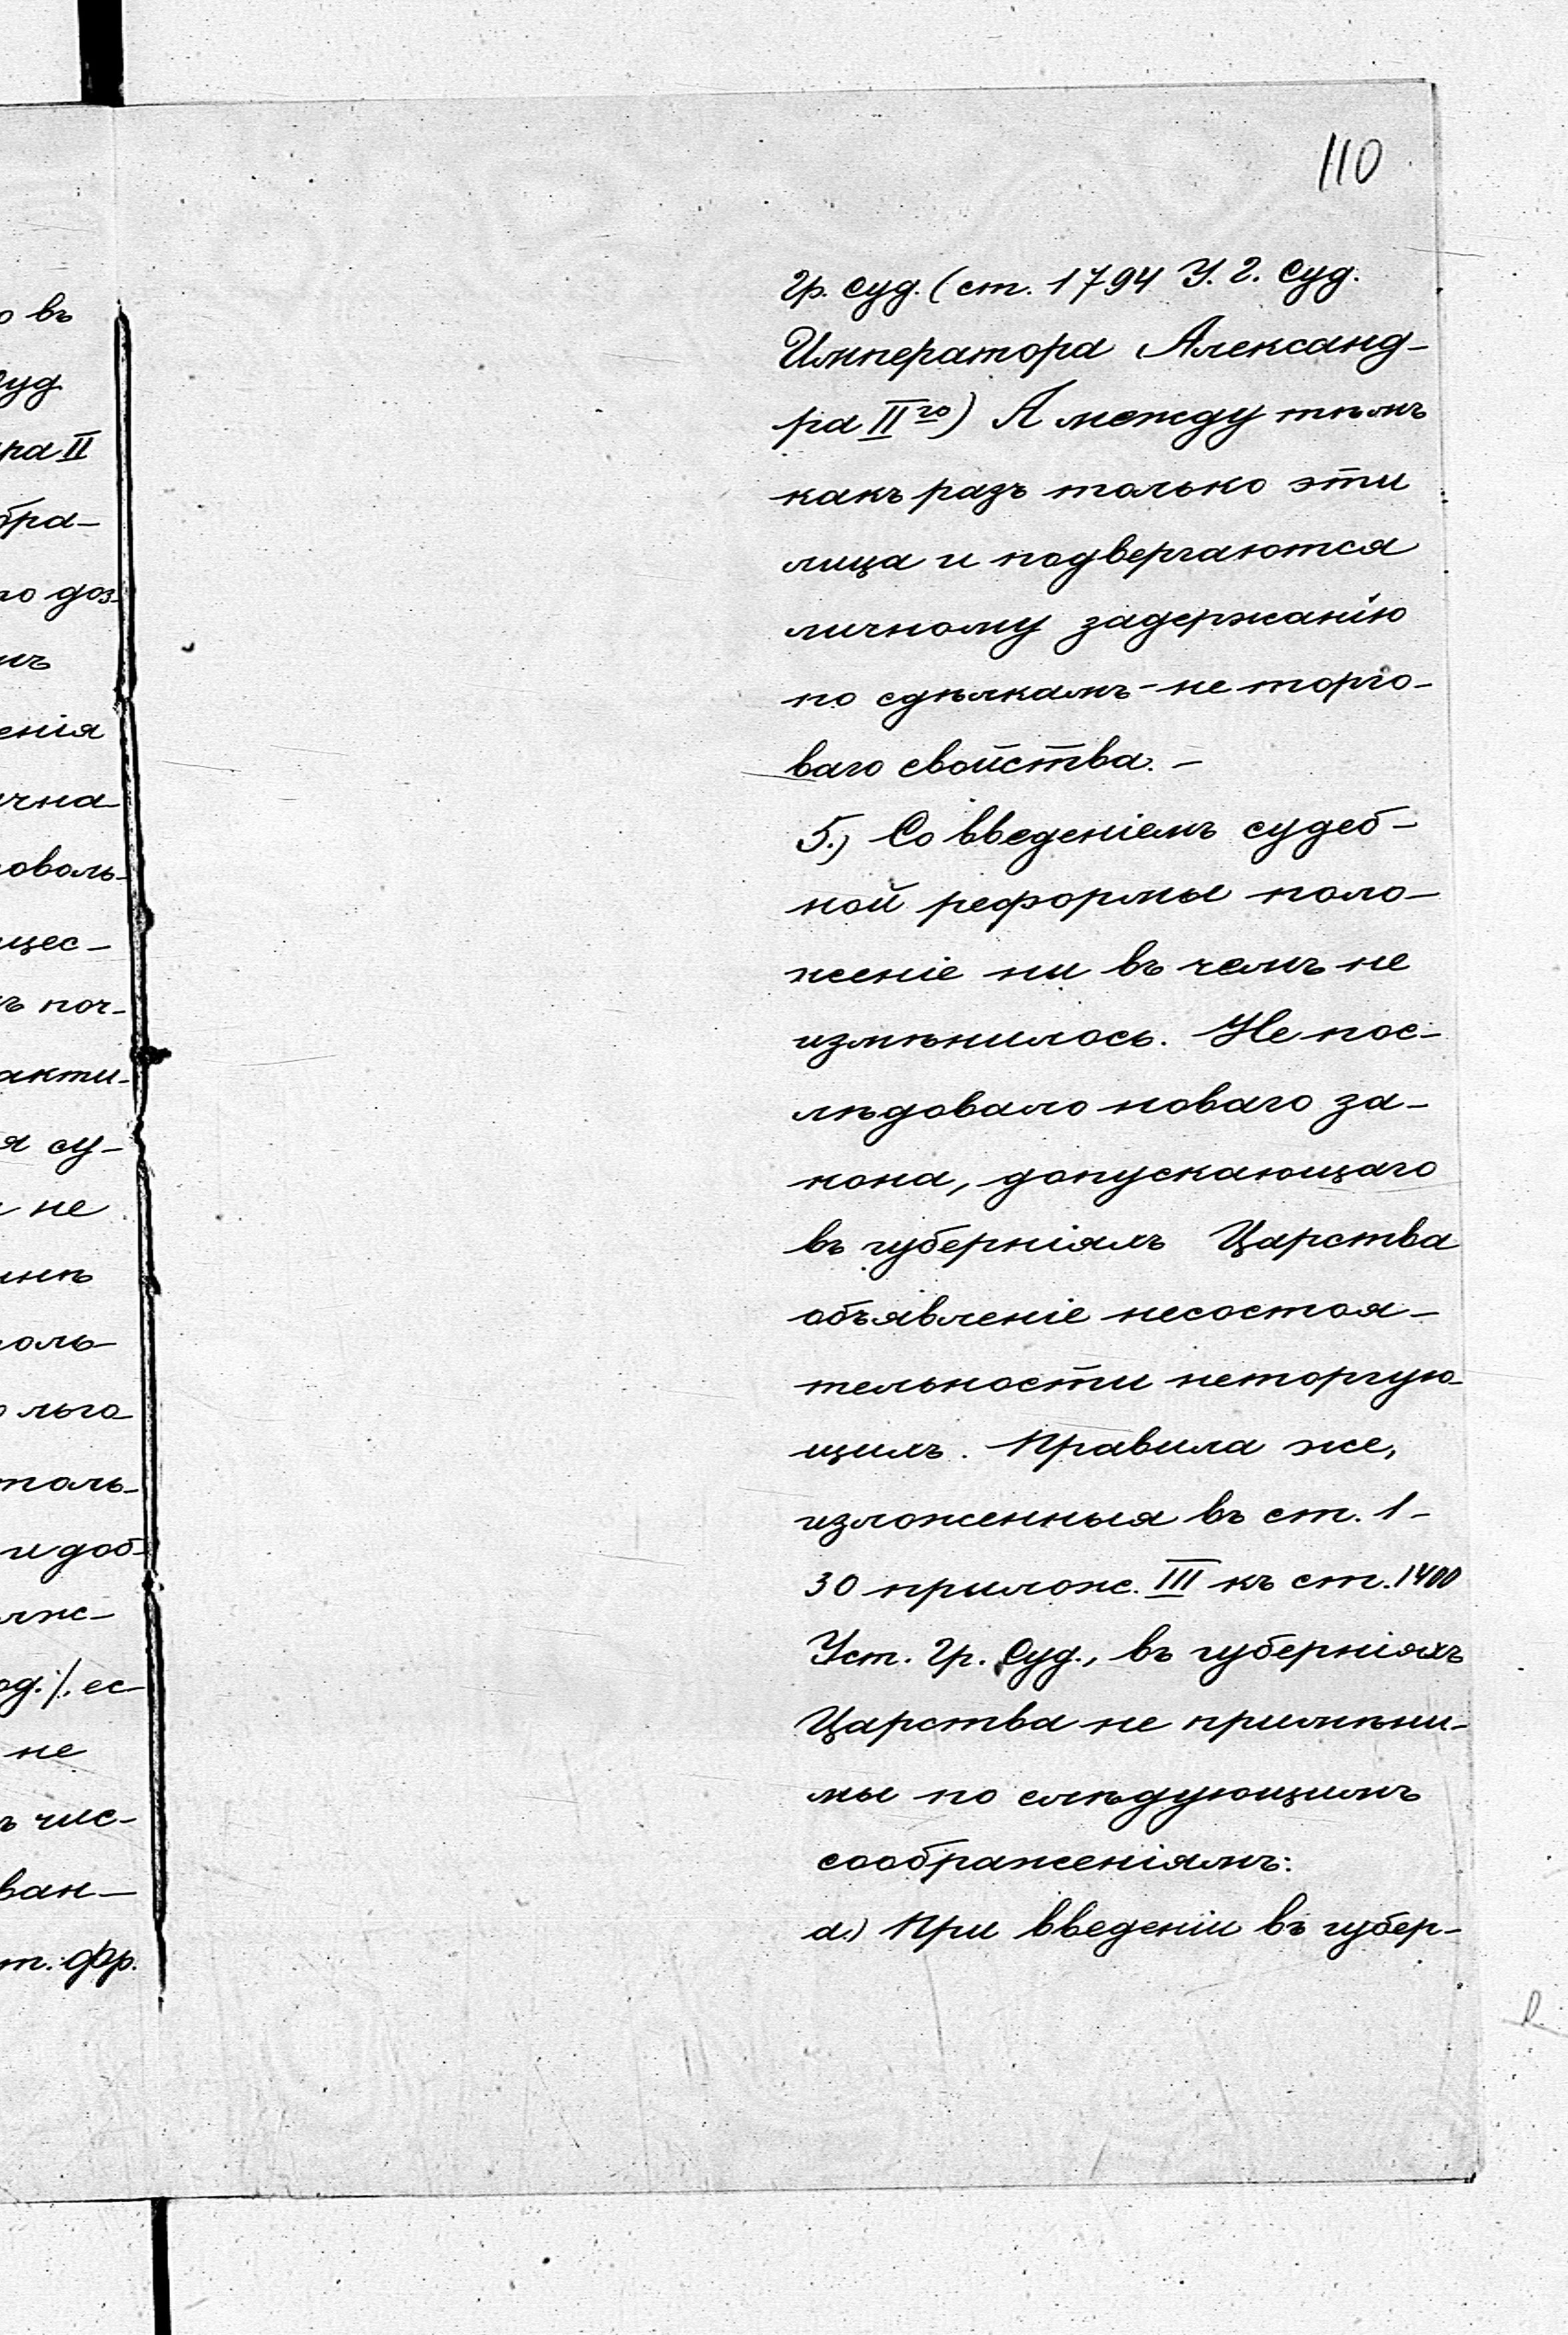 110
о въ
Суд
ра II
бра-
го доз-
мъ
енія
чна-
оволь-
щес-
ъ поч-
акти-
я су-
не
инѣ
оль-
льго-
толь-
и доб-
лж-
од./. ес-
не
ъ чис-
ван-
т. Фр.
Гр. Суд. (ст. 1794 У. Г. Суд.
Императора Александ-
ра II го) А между тѣмъ
какъ разъ только эти
лица и подвергаются
личному задержанію
по сдѣлкамъ не торго-
ваго свойства. -
5.) Со введеніемъ судеб-
ной реформы поло-
женіе ни въ чемъ не
измѣнилось. Не пос-
лѣдовало новаго за-
кона, допускающаго
въ губерніяхъ Царства
объявленіе несостоя-
тельности неторгую-
щихъ. Правила же,
изложенныя въ ст. 1-
30 прилож. III къ ст. 1400
Уст. Гр. Суд., въ губерніяхъ
Царства не примѣни-
мы по слѣдующимъ
соображеніямъ:
а.) При введеніи въ губер-